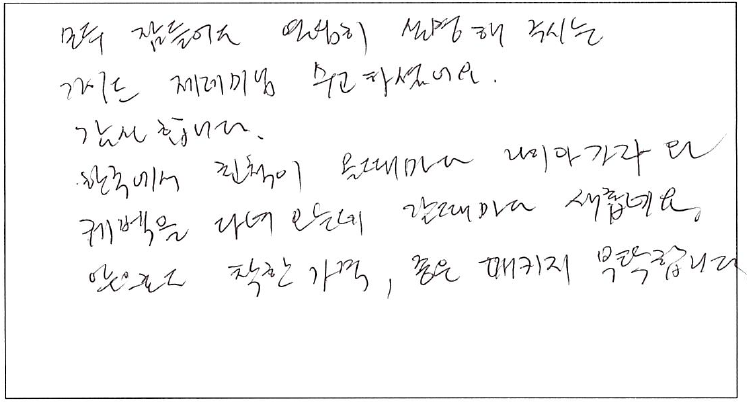 모두 잠들어도 열심히 설명해 주시는
가이드 제레미님 수고하셨어요.
감사합니다.
한국에서 친척이 올때마다 나이아가라 와
퀘벡을 다녀 오는데 갈때마다 새롭네요.
앞으로도 착한가격, 좋은 패키지 부탁합니다